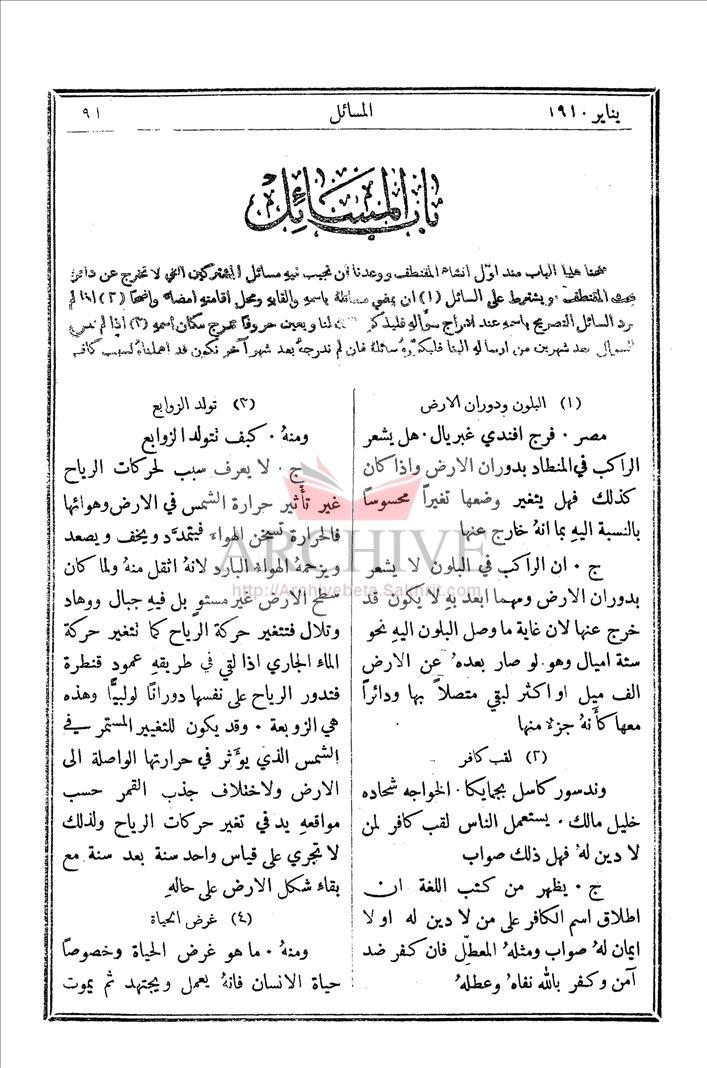 يناير ١٩١٠
المسائل
٩١
باب المسائل
فتحنا هذا الباب منذ اوّل انشاء المقتطف ووعدنا ان نجيب فيه مسائل المشتركين التي لا تخرج عن دائرة
بحث المقتطف ويشترط على السائل (١) ان يمضي مسائلهُ باسمه والقابه ومحل اقامته امضاءً واضحًا (٢) اذا لم
يرد السائل التصريح باسمه عند ادراج سؤاله فليذكر ذلك لنا ويعين حروفًا تدرج مكان اسمه (٣) اذا لم ندرج
السؤال بعد شهرين من ارساله الينا فليكررهُ سائلهُ فان لم ندرجهُ بعد شهر آخر نكون قد اهملناهُ لسبب كافٍ
(١) البلون ودوران الارض
مصر ٠ فرج افندي غبريال ٠ هل يشعر
الراكب في المنطاد بدوران الارض واذا كان
كذلك فهل يتغير وضعها تغيراً محسوساً
بالنسبة اليهِ بما انهُ خارج عنها
ج ٠ ان الراكب في البلون لا يشعر
بدوران الارض ومهما ابعد بهِ لا يكون قد
خرج عنها لان غاية ما وصل البلون اليهِ نحو
ستة اميال وهو لو صار بعدهُ عن الارض
الف ميل او اكثر لبقي متصلاً بها ودائراً
معها كأنهُ جزء منها
(٢) لقب كافر
وندسور كاسل بجمايكا ٠ الخواجه شحاده
خليل مالك ٠ يستعمل الناس لقب كافر لمن
لا دين لهُ فهل ذلك صواب
ج ٠ يظهر من كتب اللغة ان
اطلاق اسم الكافر على من لا دين له او لا
ايمان لهُ صواب ومثلهُ المعطّل فان كفر ضد
آمن وكفر بالله نفاهُ وعطلهُ
(٣) تولد الزوابع
ومنهُ ٠ كيف تتولد الزوابع
ج ٠ لا يعرف سبب لحركات الرياح
غير تأثير حرارة الشمس في الارض وهوائها
فالحرارة تسخن الهواء فيتمدَّد ويخف ويصعد
ويزحمهُ الهواء البارد لانهُ اثقل منهُ ولما كان
سطح الارض غير مستوٍ بل فيهِ جبال ووهاد
وتلال فتتغير حركة الرياح كما تتغير حركة
الماء الجاري اذا لقي في طريقهِ عمود قنطرة
فتدور الرياح على نفسها دورانًا لولبيًّا وهذه
هي الزوبعة ٠ وقد يكون للتغيير المستمر في
الشمس الذي يؤثر في حرارتها الواصلة الى
الارض ولاختلاف جذب القمر حسب
مواقعهِ يد في تغير حركات الرياح ولذلك
لا تجري على قياس واحد سنة بعد سنة مع
بقاء شكل الارض على حالهِ
(٤) غرض الحياة
ومنهُ ٠ ما هو غرض الحياة وخصوصاً
حياة الانسان فانهُ يعمل ويجتهد ثم يموت
ARCHIVE
http://Archivebeta.Sakhrit.com